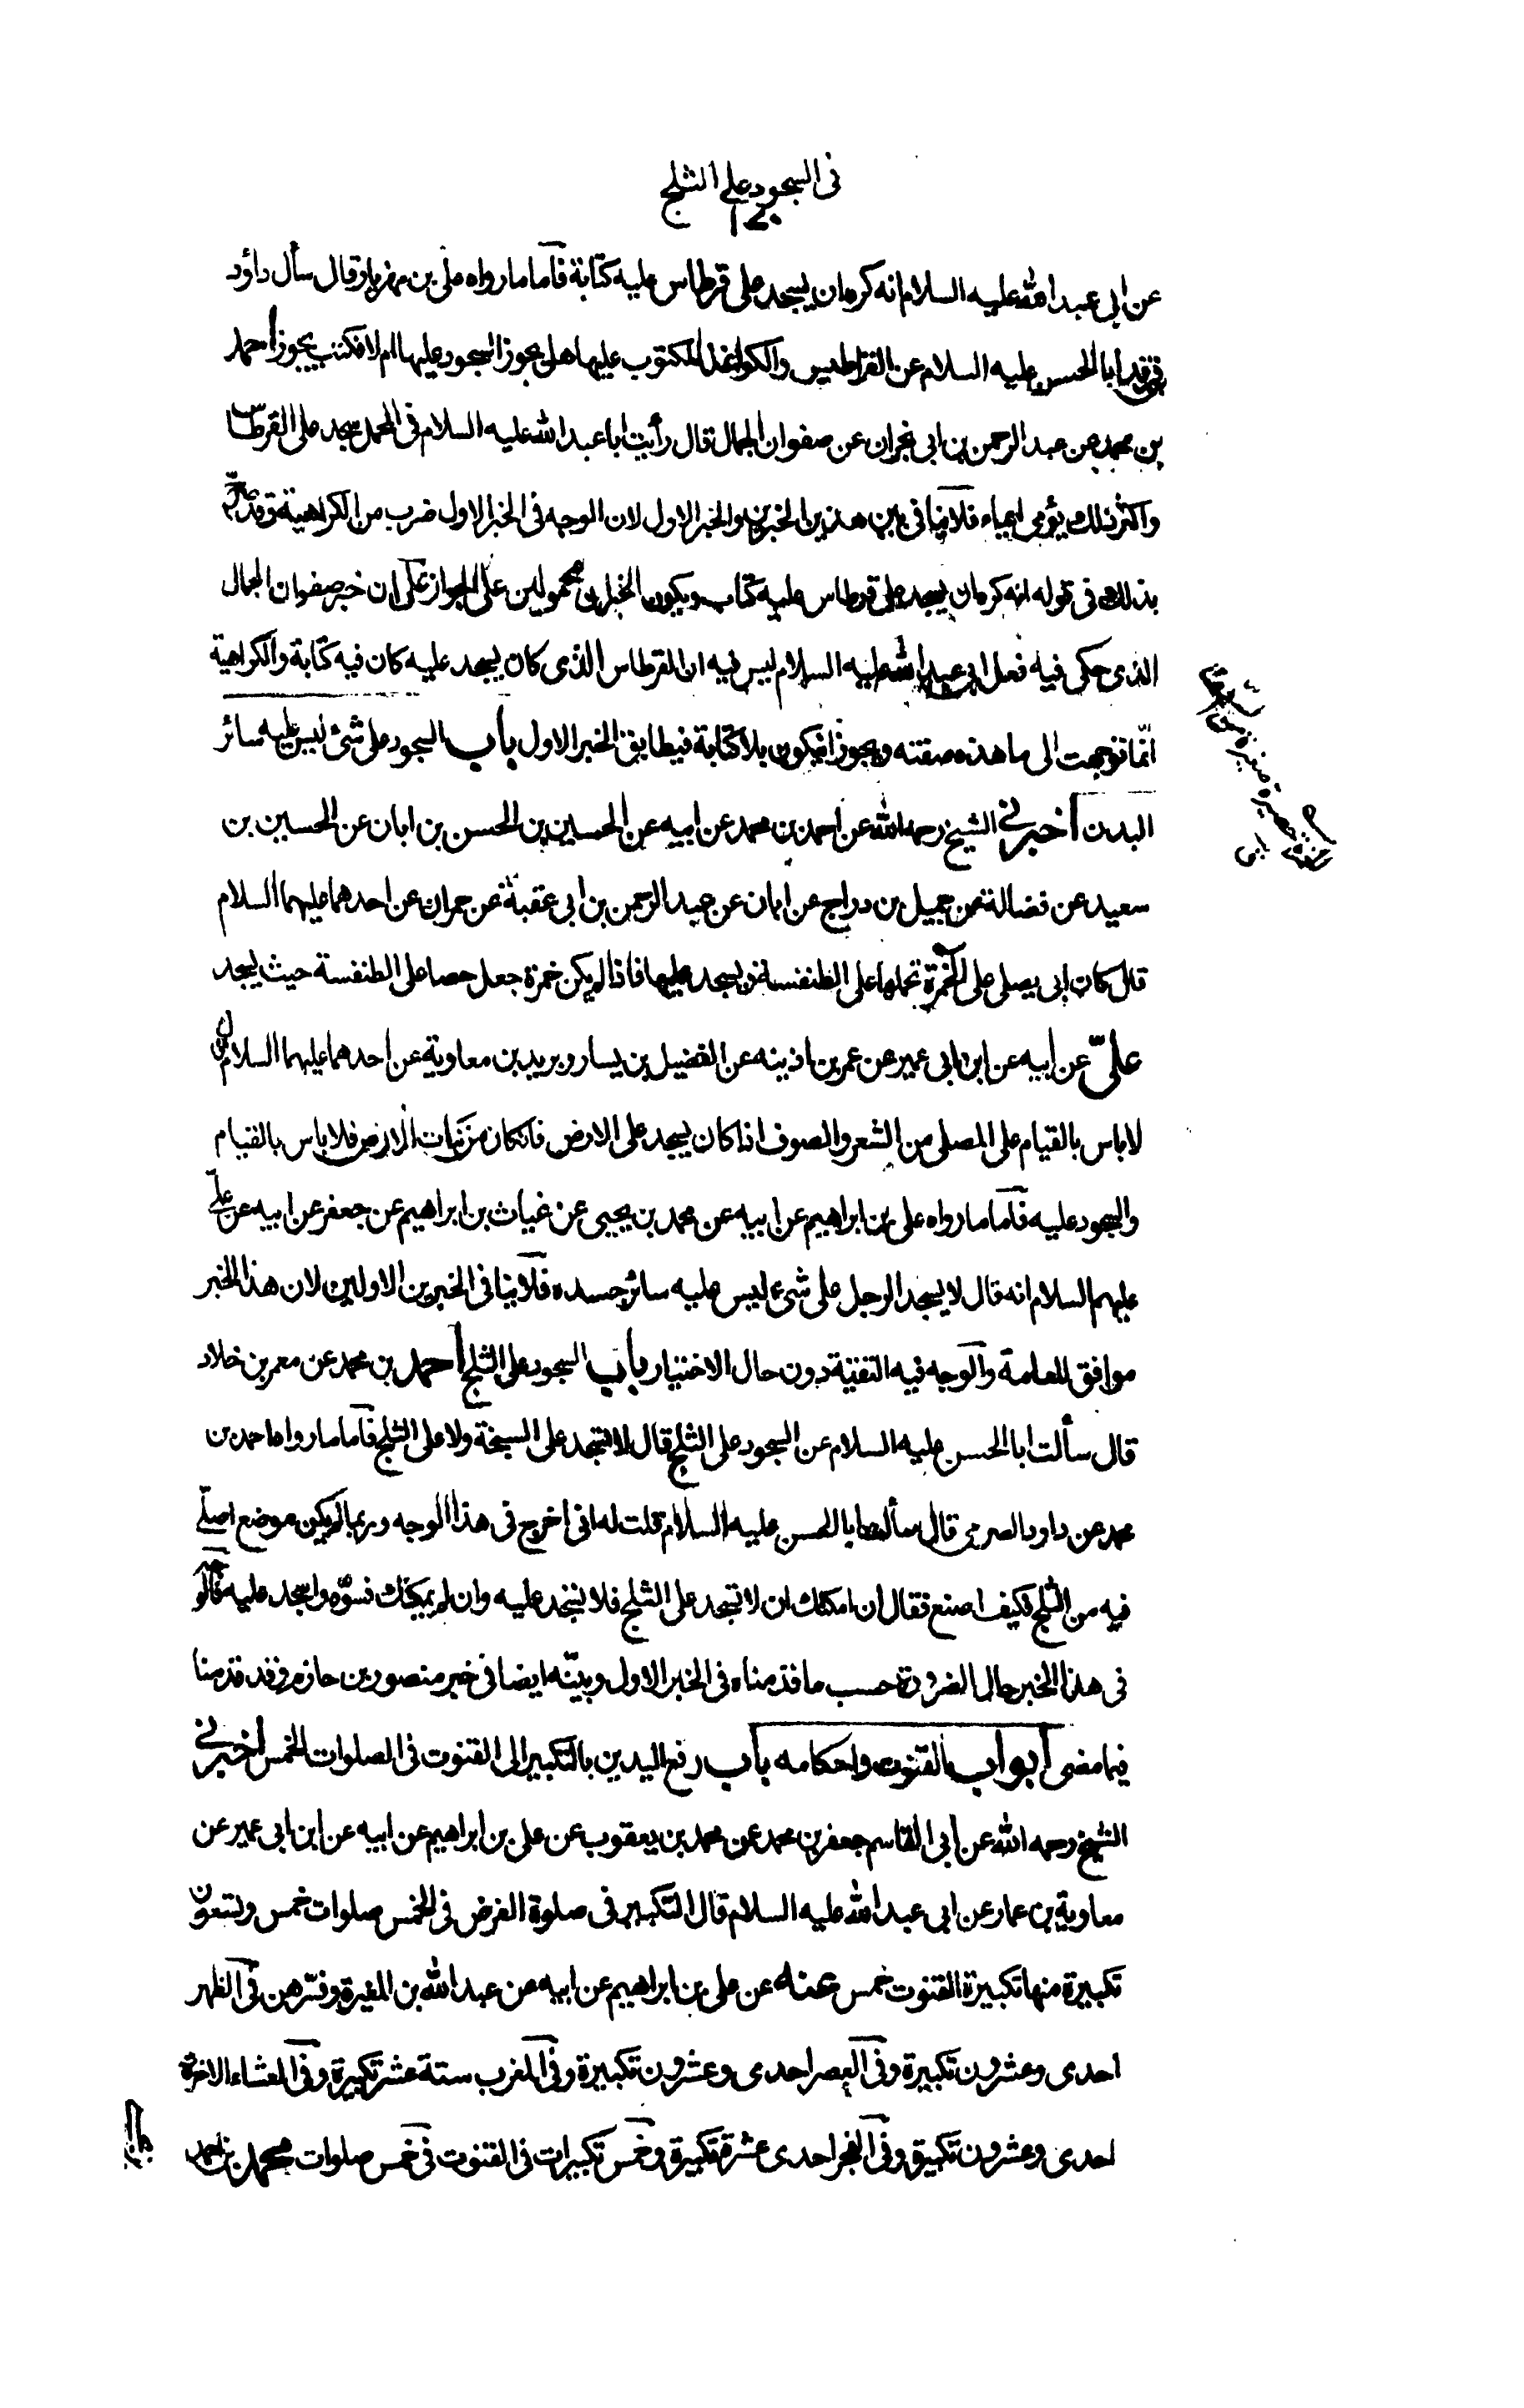 فى السجود على الثلج
١٧٠
عن ابى عبد الله عليه السلام انه كره ان يسجد على قرطاس عليه كتابة فاما ما رواه على بن مهزيار قال سأل داؤد
فرقد ابا الحسن عليه السلام عن القراطيس والكواغذ المكتوب عليها هل يجوز السجود عليها ام لا فكتب يجوز احمد
بن محمد عن عبد الرحمن بن ابى نجران عن صفوان الجمال قال رأيت ابا عبد الله عليه السلام فى المحمل سجد على القرطاس
واكثر ذلك يؤمى ايماء فلا ينافى بين هذين الخبرين والخبر الاول لان الوجه فى الخبر الاول ضرب من الكراهية وقد صرح
بذلك فى قوله انه كره ان يسجد على قرطاس عليه كتاب ويكون الخبرين محمولين على الجواز على ان خبر صفوان الجمال
الذى حكى فيه فعل ابى عبد الله عليه السلام ليس فيه ان القرطاس الذى كان يسجد عليه كان فيه كتابة والكراهية
انّما توجهت الى ما هذه صفته ويجوز ان يكون بلا كتابة فيطابق الخبر الاول باب السجود على شئ ليس عليه سائر
البدن اخبرنى الشيخ رحمه الله عن احمد بن محمد عن ابيه عن الحسين بن الحسن بن ابان عن الحسين بن
سعيد عن فضالة عن جميل بن دراج عن ابان عن عبد الرحمن بن ابى عقبة عن حمران عن احدهما عليهما السلام
قال كان ابى يصلى على الخمرة تحملها على الطنفسة ويسجد عليها فاذا لم يكن خمرة جعل حصا على الطنفسة حيث يسجد
علىّ عن ابيه عن ابن ابى عمير عن عمر بن اذينه عن الفضيل بن يسار وبريد بن معاوية عن احدهما عليهما السلام قال
لا باس بالقيام على المصلى من الشعر والصوف اذا كان يسجد على الارض فان كان من نبات الارض فلا باس بالقيام
والسجود عليه فاما ما رواه على بن ابراهيم عن ابيه عن محمد بن يحيى عن غياث بن ابراهيم عن جعفر عن ابيه عن علىّ
عليهم السلام انه قال لا يسجد الرجل على شئ ليس عليه سائر جسده فلا ينافى الخبرين الاولين لان هذا الخبر
موافق للعامة والوجه فيه التقيّة دون حال الاختيار باب السجود على الثلج احمد بن محمد عن معمر بن خلاد
قال سألت ابا الحسن عليه السلام عن السجود على الثلج قال لا تسجد على السبخة ولا على الثلج فاما ما رواه احمد بن
محمد عن داود الصرمى قال سألت ابا الحسن عليه السلام قلت له انى اخرج فى هذا الوجه وربما لم يكن موضع اصلّى
فيه من الثلج فكيف اصنع فقال ان امكنك ان لا تسجد على الثلج فلا تسجد عليه وان لم يمكنك فسوّه واسجد عليه فالوجه
فى هذا الخبر حال الضرورة حسب ما قدمناه فى الخبر الاول وبيّنه ايضا فى خبر منصور بن حازم وقد قدمنا
فيما مضى ابواب القنوت واحكامه باب رفع اليدين بالتكبير الى القنوت فى الصلوات الخمس اخبرنى
الشيخ رحمه الله عن ابى القاسم جعفر بن محمد عن محمد بن يعقوب عن على بن ابراهيم عن ابيه عن ابن ابى عمير عن
معاوية بن عمار عن ابى عبد الله عليه السلام قال التكبير فى صلوة الفرض فى الخمس صلوات خمس وتسعون
تكبيرة منها تكبيرة القنوت خمس وعنه عن على بن ابراهيم عن ابيه عن عبد الله بن المغيرة وفسّرهن فى الظهر
احدى وعشرون تكبيرة وفى العصر احدى وعشرون تكبيرة وفى المغرب ستة عشر تكبيرة وفى العشاء الاخرة
احدى وعشرون تكبيرة وفى الفجر احدى عشرة تكبيرة وخمس تكبيرات فى القنوت فى خمس صلوات محمد بن احمد